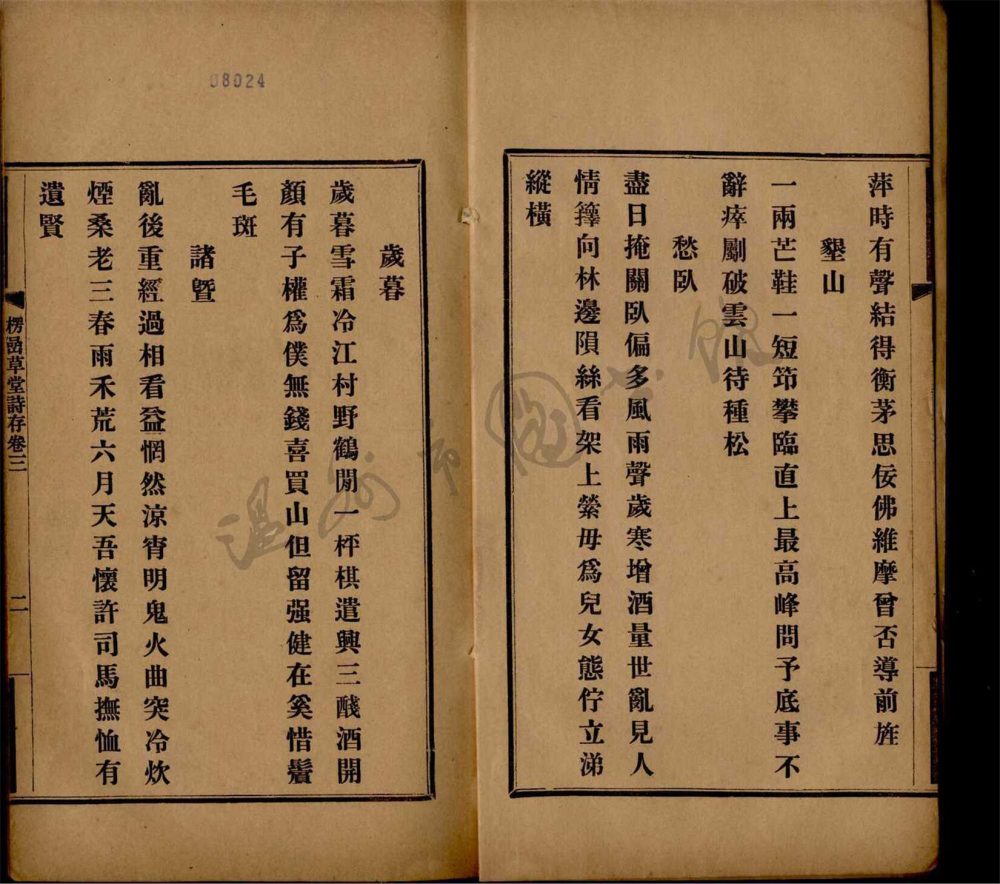 萍時有聲結得衡茅思佞佛維摩曾否導前旌
墾山
一兩芒鞋一短笻攀臨直上最高峰問予底事不
辭瘁劚破雲山待種松
愁臥
盡日掩關臥偏多風雨聲歲寒增酒量世亂見人
情籜向林邊隕絲看架上縈毋爲兒女態佇立涕
縱橫
08024
歲暮
歲暮雪霜冷江村野鶴閒一枰棋遣興三醆酒開
顏有子權爲僕無錢喜買山但留强健在奚惜鬢
毛斑
諸曁
亂後重經過相看益惘然涼宵明鬼火曲突冷炊
煙桑老三春雨禾荒六月天吾懷許司馬撫恤有
遺賢
楞嵒草堂詩存卷三
二
溫州市圖書館